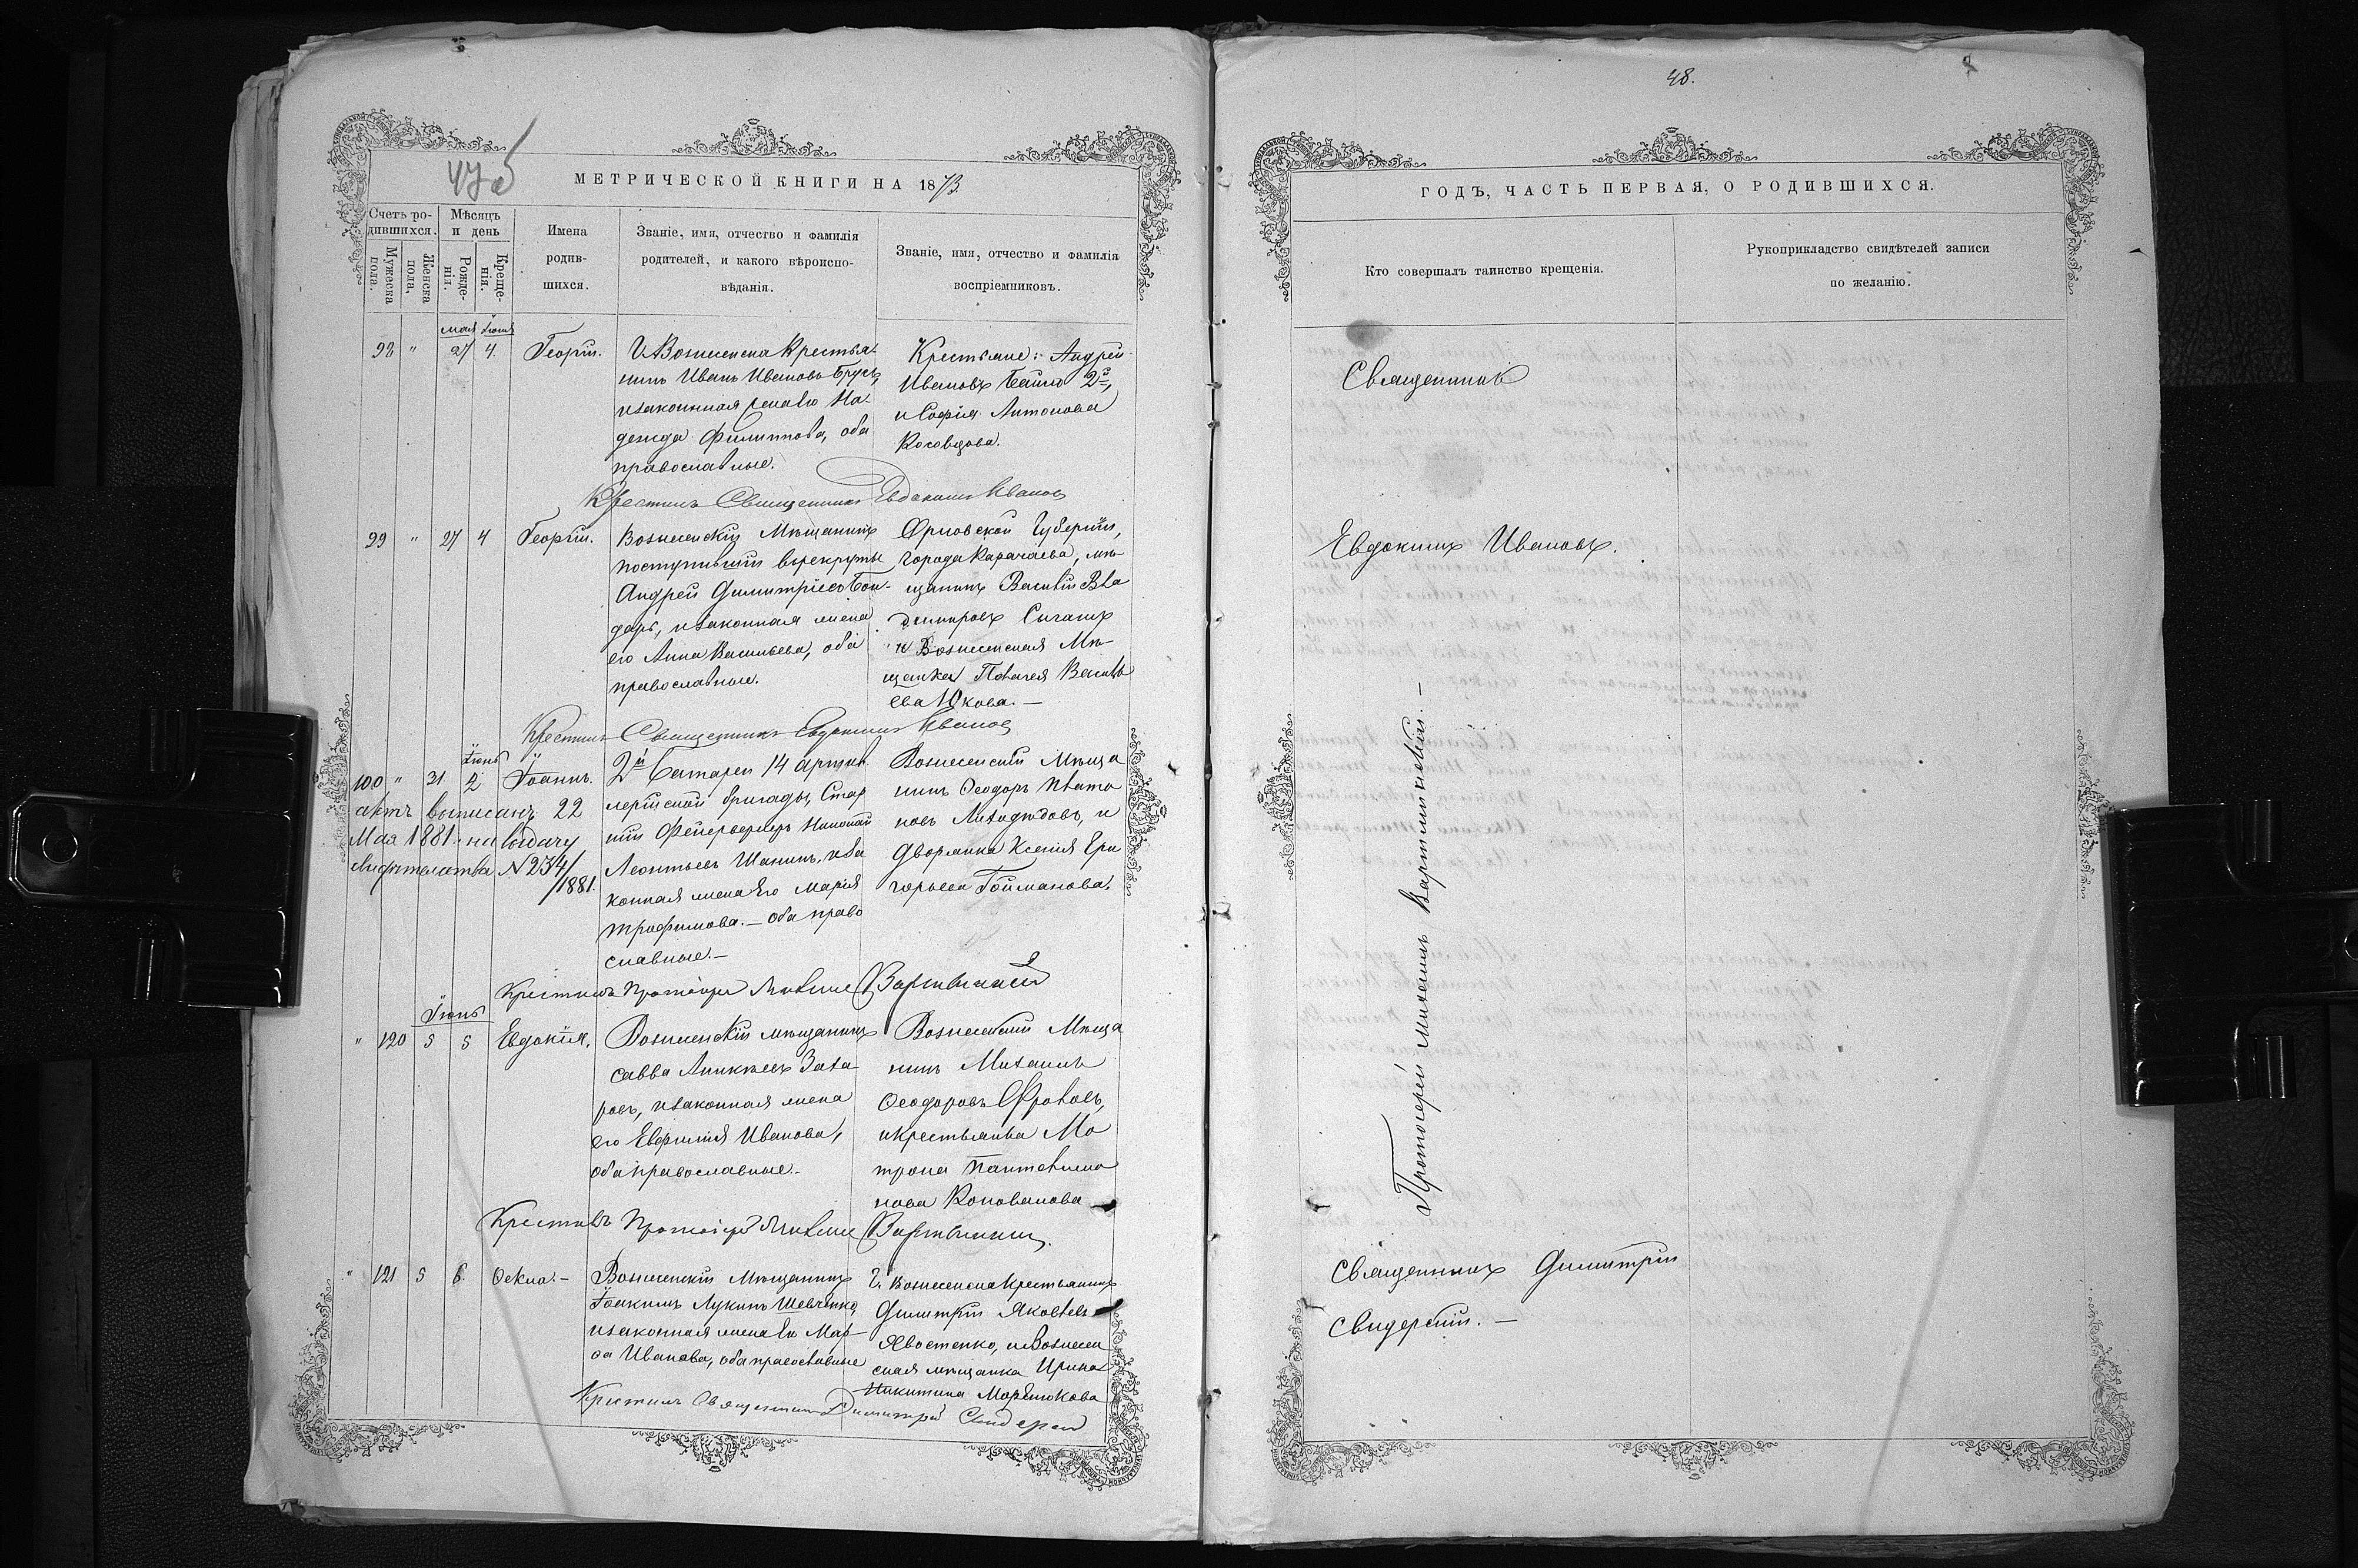 47об
МЕТРИЧЕСКОЙ КНИГИ НА 1873
Счетъ ро-
дившихся.
Мужеска
пола.
Женска
пола.
Мѣсяцъ
и день
Рожде-
нія.
Креще-
нія.
Имена
родив-
шихся.
Званіе, имя, отчество и фамилія
родителей, и какого вѣроиспо-
вѣданія.
Званіе, имя, отчество и фамилія
воспріемниковъ.
мая Іюня
98 " 27 4. Георгій.
Г. Вознесенска Крестья-
нинъ Иванъ Ивановъ Брусъ,
и законная жена его На-
дежда Филиппова, оба
православные.
Крестьяне: Андрей
Ивановъ 2й,
и Софія Антонова
Косовцова.
Крестилъ Священникъ Евдокимъ Ивановъ
99 " 27 4 Георгій.
Вознесенскій Мѣщанинъ
поступившій въ рекруты
Андрей Димитріевъ Бон-
дарь, и законная жена
его Анна Васильева, оба
православные.
Орловской Губерніи,
города Карачаева, мѣ-
щанинъ Василій Вла
димировъ
и Вознесенская Мѣ-
щанка Пелагея Василь
ева Юкова.—
Крестилъ Священникъ Евдокимъ Ивановъ
Іюнь
100 " 31. 2 Іоаннъ.
актъ выписанъ 22
Мая 1881. на выдачу
свидѣтельства N 234/
1881.
2й Батареи 14 артил
лерійской бригады, Стар
шій Фейерверкеръ Николай
Леонтьевъ Шанинъ, и за
конная жена его Марія
Трофимова.— оба право
славные.—
Вознесенскій Мѣща
нинъ Ѳеодоръ Плато
новъ Лиходѣдовъ, и
Дворянка Ксенія Гри
горьева Гойманова.
Крестилъ Протоіерей Михаилъ Вартминскій
Іюнь
" 120 5 5 Евдокія.
Вознесенскій мѣщанинъ
Савва Аникѣевъ Заха
ровъ, и законная жена
его Евфимія Иванова,
оба православные.—
Вознесенскій Мѣща
нинъ Михаилъ
Ѳеодоровъ Фроловъ,
и крестьянка Ма
трона Пантелимо
нова Коновалова
Крестилъ Протоіерей Михаилъ Вартминскій.
" 121 5 6. Ѳекла.—
Вознесенскій Мѣщанинъ
Іоакимъ Лукинъ Шевченко,
и законная жена его Мар-
ѳа Иванова, оба православные
Г. Вознесенска Крестьянинъ
Димитрій Яковлевъ
Хвостенко, и Вознесен
ская мѣщанка Ирина
Никитина
Крестилъ Священникъ Димитрій Свидерскій
48.
ГОДЪ, ЧАСТЬ ПЕРВАЯ, О РОДИВШИХСЯ.
Кто совершалъ таинство крещенія.
Рукоприкладство свидѣтелей записи
по желанію.
Священникъ
Евдокимъ Ивановъ.
Протоіерей Михаилъ Вартминскій.—
Священникъ Димитрій
Свидерскій.—